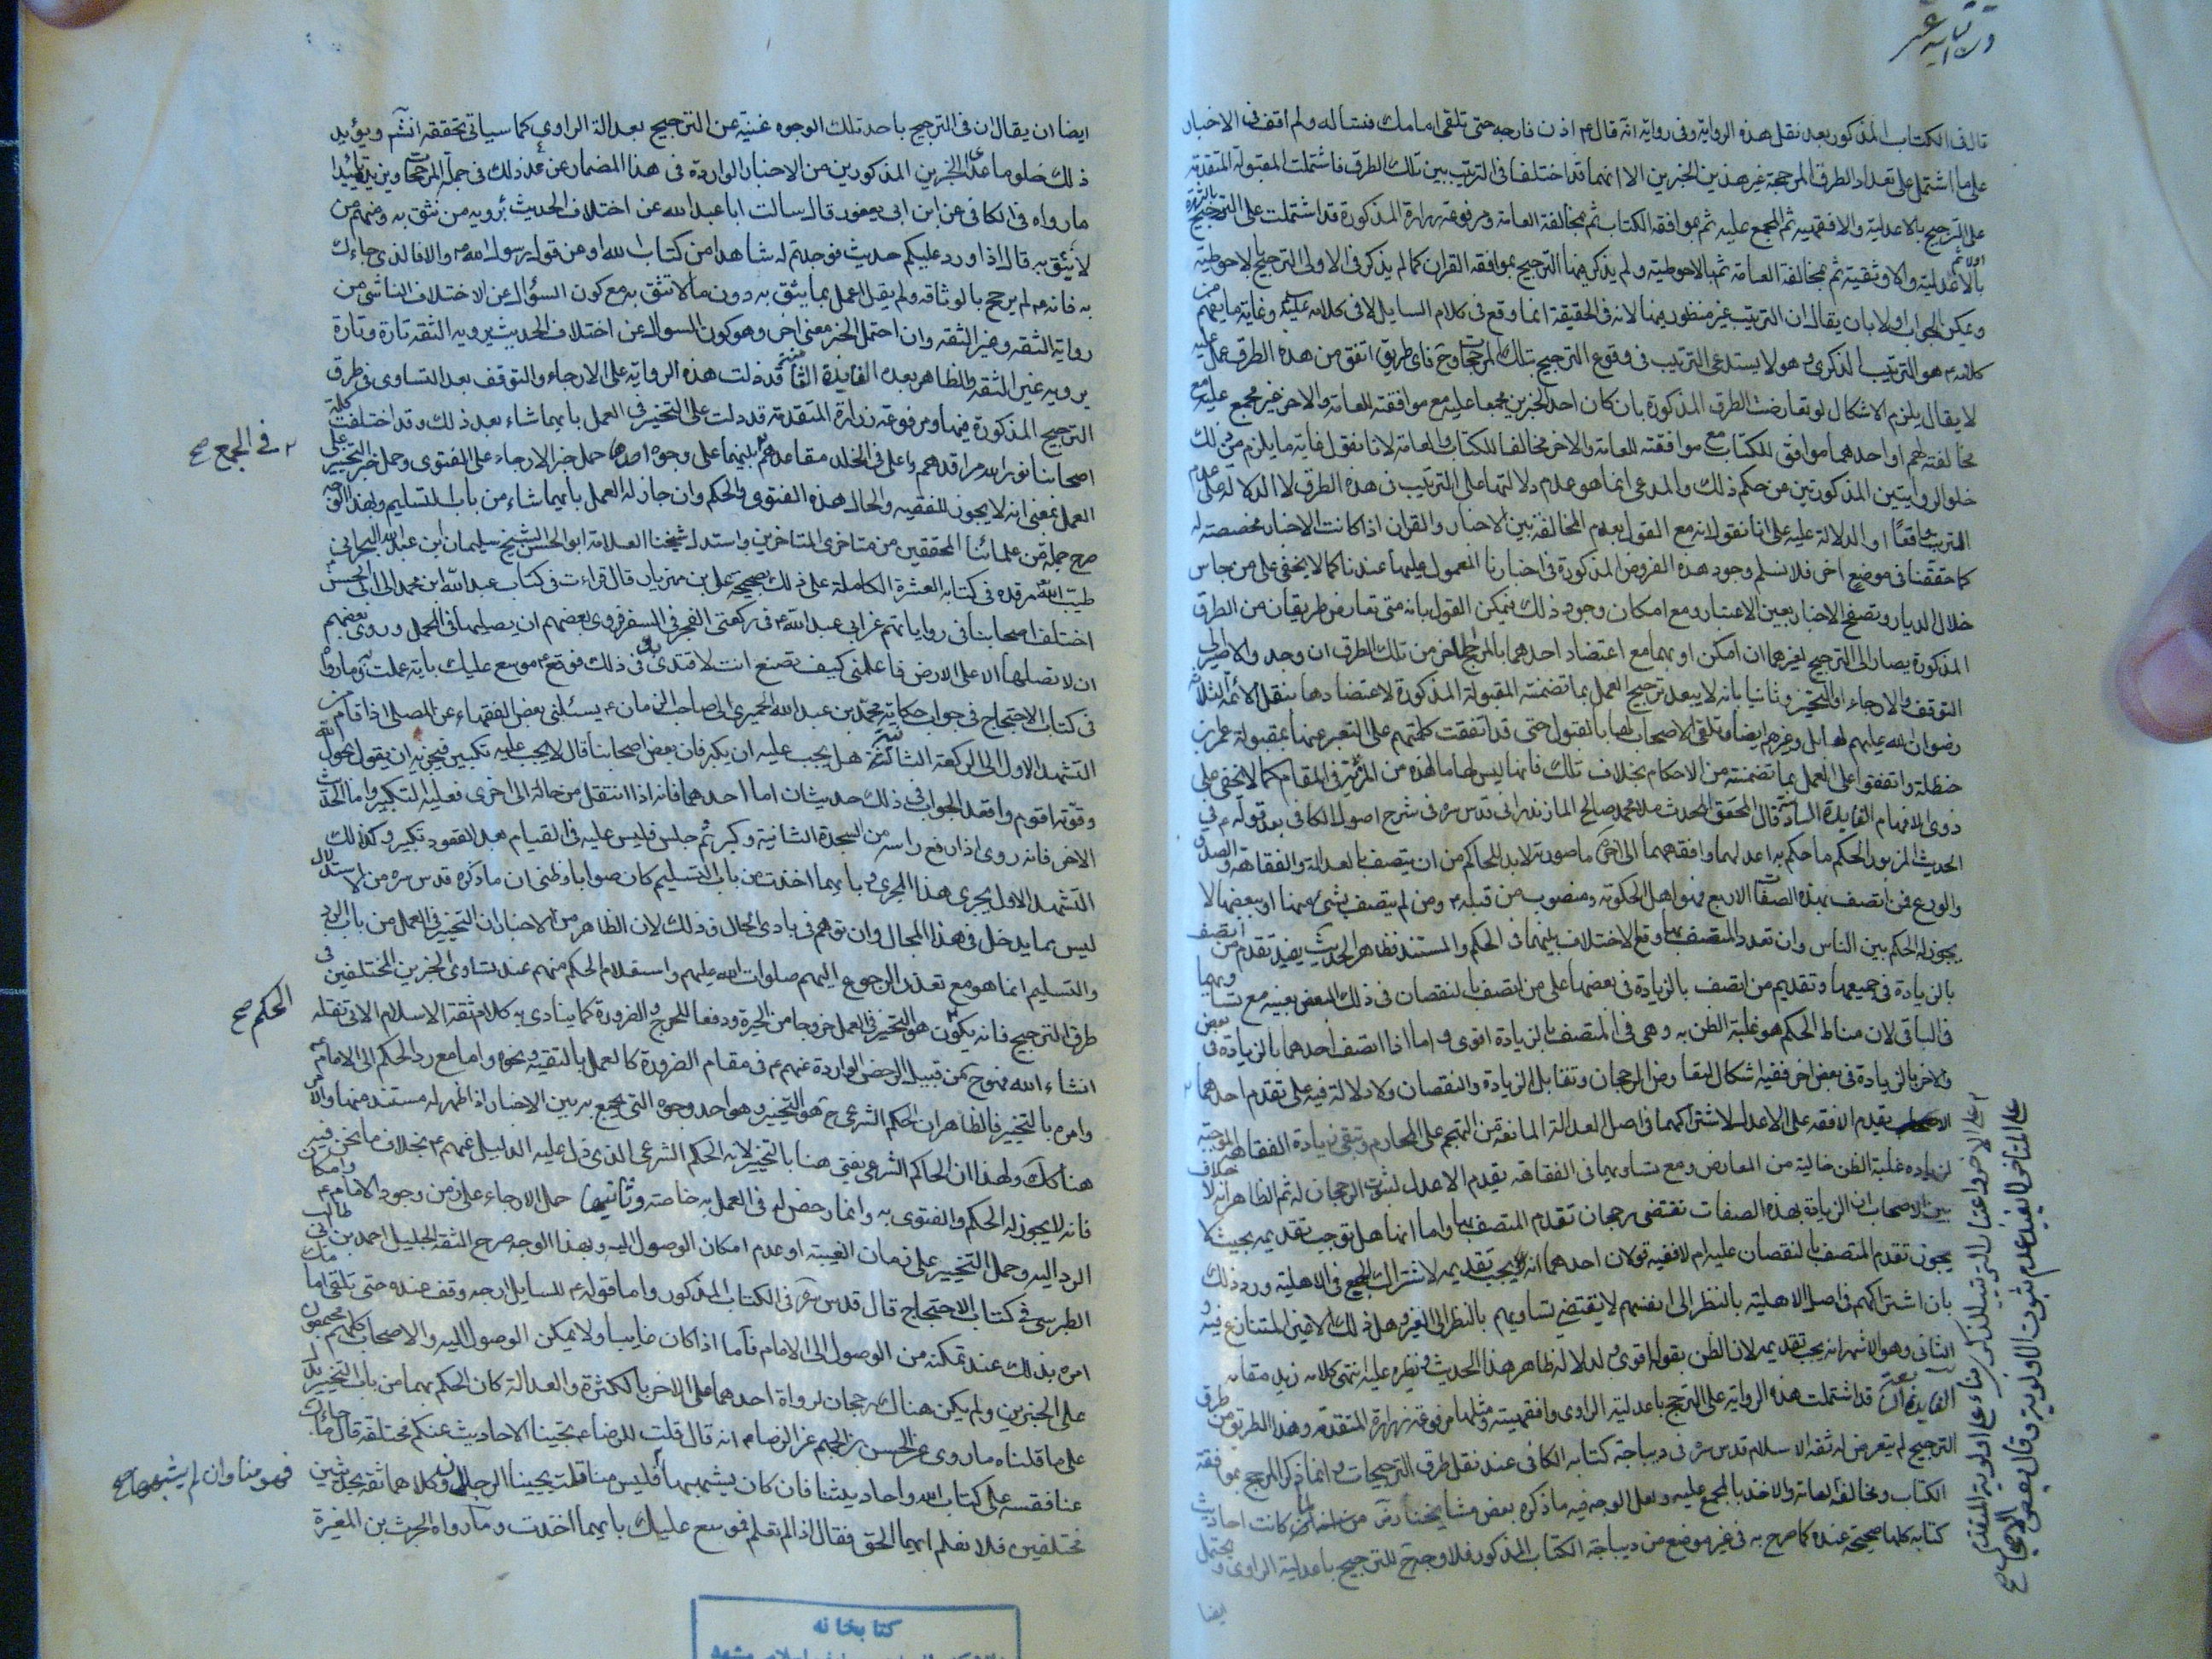 قال فى الكتاب المذكور بعد نقل هذه الرواية وفى رواية انه قال ع اذن فارجه حتى تلقى امامك فتسأله ولم اقف فى الاخبار
على ما اشتمل على تعداد الطرق المرجحة غير هذين الخبرين الا انهما قد اختلفا فى الترتيب بين تلك الطرق فاشتملت المقبولة المتقدمة
على الترجيح بالاعدلية والافقهية ثم المجمع عليه ثم بموافقة الكتاب ثم بمخالفة العامة ومرفوعة زرارة المذكورة قد اشتملت على الترجيح بالشهرة
اولا ثم بالاعدلية والاوثقية ثم بمخالفة العامة ثم بالاحوطية ولم يذكر فيها الترجيح بموافقة القران كما لم يذكر فى الاولى الترجيح بالاحوطية
ويمكن الجواب اولا بان يقال ان الترتيب غير منظور فيهما لانه فى الحقيقة انما وقع فى كلام السايل لا فى كلامه عليه وغاية ما يفهم من
كلامه ع هو الترتيب الذكرى وهو لا يستدعى الترتيب فى وقوع الترجيح بتلك المرجحات وح فاى طريق اتفق من هذه الطرق عمل عليه
لا يقال يلزم الاشكال لو تعارضت الطرق المذكورة بان كان احد الخبرين مجمعا عليه مع موافقته للعامة والاخر غير مجمع عليه مع
مخالفته لهم او احدهما موافق للكتاب مع موافقته للعامة والاخر مخالفا للكتاب والعامة لانا نقول غاية ما يلزم من ذلك
خلو الروايتين المذكورتين من حكم ذلك والمدعى انما هو عدم دلالتهما على الترتيب فى هذه الطرق لا الدلالة على عدم
الترتيب واقعًا او الدلالة عليه على انا نقول انه مع القول بعدم المخالفة بين الاخبار والقران اذا كانت الاخبار مخصصة له
كما حققنا فى موضع اخر فلا نسلم وجود هذه الفروض المذكورة فى اخبارنا المعمول عليها عندنا كما لا يخفى على من جاس
خلال الديار وتصفح الاخبار بعين الاعتبار ومع امكان وجود ذلك فيمكن القول بانه متى تعارض طريقان من الطرق
المذكورة يصار الى الترجيح بغيرهما ان امكن او بهما مع اعتضاد احدهما بالمرجح الاخر من تلك الطرق ان وجد والا فالى
التوقف والارجاء او التخيير وثانيا بانه لا يبعد ترجيح العمل بما تضمنته المقبولة المذكورة لاعتضادها بنقل الائمة الثلثة
رضوان الله عليهم لها بل وغيرهم ايضا وتلقى الاصحاب لها بالقبول حتى قد اتفقت كلمتهم على التعبير عنها بمقبولة عمر بن
حنظلة واتفقوا على العمل بما تضمنته من الاحكام بخلاف تلك فانها ليس لها ما لهذه من المزية فى المقام كما لا يخفى على
ذوى الافهام الفايدة السادسة قال المحقق المحدث ملا محمد صالح المازندرانى قدس سره فى شرح اصول الكافى بعد قوله ع فى
الحديث المزبور الحكم ما حكم به اعدلهما وافقههما الى اخره ما صورته لابد للحاكم من ان يتصف بالعدالة والفقاهة والصدق
والورع فمن اتصف بهذه الصفات الاربع فهو اهل للحكومة ومنصوب من قبله ع ومن لم يتصف بشئ منها او ببعضها لا
يجوز له الحكم بين الناس وان تعدد المتصف بها ووقع الاختلاف بينهما فى الحكم والمستند فظاهر الحديث يفيد تقدم من اتصف
بالزيادة فى جميعها وتقديم من اتصف بالزيادة فى بعضها على من اتصف بالنقصان فى ذلك البعض بعينه مع تساويهما
فى الباقى لان مناط الحكم هو غلبة الظن به وهى فى المتصف بالزيادة اقوى واما اذا اتصف احدهما بالزيادة فى بعض
والاخر بالزيادة فى بعض اخر ففيه اشكال لتعارض الرجحان وتقابل الزيادة والنقصان ولا دلالة فيه على تقدم احدهما
يقدم الافقه على الاعدل لاشتراكهما فى اصل العدالة المانعة من التهجم على المحارم وتبقى زيادة الفقاهة الموجبة
لزيادة غلبة الظن خالية من المعارض ومع تساويهما فى الفقاهة يقدم الاعدل لثبوت الرجحان له ثم الظاهر انه لا خلاف
بين الاصحاب ان الزيادة بهذه الصفات تقتضى رجحان تقدم المتصف بها واما انها هل توجب تقديمه بحيث لا
يجوز تقدم المتصف بالنقصان عليه ام لا ففيه قولان احدهما انه لا يجب تقديمه لاشتراك الجميع فى الاهلية ورد ذلك
بان اشتراكهم فى اصل الاهلية بالنظر الى انفسهم لا يقتضى تساويهم بالنظر الى الغير وهل ذلك الا عين المتنازع فيه و
الثانى وهو الاشهر انه يجب تقديمه لان الظن بقوله اقوى ولدلالة ظاهر هذا الحديث ونظيره عليه انتهى كلامه زيد مقامه
الفايدة السابعة قد اشتملت هذه الرواية على الترجيح باعدلية الراوى وافقهيته ومثلها مرفوعة زرارة المتقدمة وهذا الطريق من طرق
الترجيح لم يتعرض له ثقة الاسلام قدس سره فى ديباجة كتابه الكافى عند نقل طرق الترجيحات وانما ذكر الترجيح بموافقة
الكتاب ومخالفة العامة والاخذ بالمجمع عليه ولعل الوجه فيه ما ذكره بعض مشايخنا من انه لما كانت احاديث
كتابه كلها صحيحة عنده كما صرح به فى غير موضع من ديباجة الكتاب المذكور فلا وجه للترجيح باعدلية الراوى ويحتمل
ايضا
على الاخر واعتبار الترتيب الذكرى بناء على اولوية المتقدم
على المتاخر لا يفيد لعدم ثبوت الاولوية وقال بعض الاصحاب صح
ايضا ان يقال ان فى الترجيح باحد تلك الوجوه غنية عن الترجيح بعدالة الراوى كما سياتى تحققه انشم ويؤيد
ذلك خلو ما عدا الخبرين المذكورين من الاخبار الواردة فى هذا المضمار عن عد ذلك فى جملة المرجحات ويزيده تاييدا
ما رواه فى الكافى عن ابن ابى يعفور قال سالت ابا عبد الله عن اختلاف الحديث يرويه من نثق به ومنهم من
لا نثق به قال اذا ورد عليكم حديث فوجدتم له شاهدا من كتاب الله او من قول رسول الله ص والا فالذى جاءكم
به فانه ع لم يرجح بالوثاقة ولم يقل اعمل بما يثق به دون ما لا تثق به مع كون السؤال عن الاختلاف الناشى من
رواية الثقة وغير الثقة وان احتمل الخبر معنى اخر وهو كون السؤال عن اختلاف الحديث يرويه الثقة تارة وتارة
يرويه غير الثقة والظاهر بعده الفايدة الثامنة قد دلت هذه الرواية على الارجاء والتوقف بعد التساوى فى طرق
الترجيح المذكورة فيها ومرفوعة زرارة المتقدمة قد دلت على التخيير فى العمل بايهما شاء بعد ذلك وقد اختلفت كلمة
اصحابنا نور الله مراقدهم واعلى فى الخلد مقاعدهم بينهما على وجوه احدها حمل خبر الارجاء على الفتوى وحمل خبر التخيير على
فى الجمع صح
العمل بمعنى انه لا يجوز للفقيه والحال هذه الفتوى والحكم وان جاز له العمل بايهما شاء من باب التسليم وبهذا الوجه
صرح جملة من علمائنا المحققين من متاخرى المتاخرين واستدل شيخنا العلامة ابو الحسن الشيخ سليمان ابن عبد الله البحرانى
طيب الله مرقده فى كتابه العشرة الكاملة على ذلك بصحيحة على بن مهزيار قال قراءت فى كتاب عبد الله ابن محمد الى ابى الحسن ع
اختلف اصحابنا فى رواياتهم عن ابى عبد الله ع فى ركعتى الفجر فى السفر فروى بعضهم ان يصليهما فى المحمل وروى بعضهم
ان لا تصلهما الا على الارض فاعلمنى كيف تصنع انت لاقتدى بك فى ذلك فوقع ع موسع عليك باية عملت وما رواه
فى كتاب الاحتجاج فى جواب مكاتبة محمد بن عبد الله الحميرى الى صاحب الزمان ع يسئلنى بعض الفقهاء عن المصلى اذا قام من
التشهد الاول الى الركعة الثالثة هل يجب عليه ان يكبر فان بعض اصحابنا قال لا يجب عليه تكبير فيجزيه ان يقول بحول الله
وقوته اقوم واقعد الجواب فى ذلك حديثان اما احدهما فانه اذا انتقل من حالة الى اخرى فعليه التكبير واما الحديث
الاخر فانه روى اذا رفع راسه من السجدة الثانية وكبر ثم جلس فليس عليه فى القيام بعد القعود تكبير وكذلك
التشهد الاول يجرى هذا المجرى وبايهما اخذت من باب التسليم كان صوابا وظنى ان ما ذكره قدس سره من الاستدلال
ليس بما يدخل فى هذا المجال وان توهم فى بادى الحال فى ذلك لان الظاهر من الاخبار ان التخيير فى العمل من باب الرد
والتسليم انما هو مع تعذر الرجوع اليهم صلوات الله عليهم واستعلام الحكم منهم عند تساوى الخبرين المختلفين فى
طرق الترجيح فانه يكون هو التخيير فى العمل خروجا من الحيرة ودفعا للحرج والضرورة كما ينادى به كلام ثقة الاسلام الاتى نقله
الحكم صح
انشاء الله فهو ح من قبيل الرخص الواردة عنهم ع فى مقام الضرورة كالعمل بالتقية ونحوه واما مع رد الحكم الى الامام ع
وامره بالتخيير فالظاهر ان الحكم الشرعى ح هو التخيير وهو احد وجوه التى يجمع به بين الاخبار اذا ظهر له مستند منها والامر
هنا كك ولهذا ان الحاكم الشرعى يفتى هنا بالتخيير لانه الحكم الشرعى الذى دل عليه الدليل عنهم ع بخلاف ما نحن فيه
فانه لا يجوز له الحكم والفتوى به وانما رخص له فى العمل به خاصة وثانيها حمل الارجاء على زمن وجود الامام ع وامكان
الرد اليه وحمل التخيير على زمان الغيبة او عدم امكان الوصول اليه وبهذا الوجه صرح الثقة الجليل احمد بن ابى طالب
الطبرسى فى كتاب الاحتجاج قال قدس سره فى الكتاب المذكور واما قوله ع للسايل ارجه وقف عنده حتى تلقى امامك
امره بذلك عند تمكنه من الوصول الى الامام فاما اذا كان غايبا ولا يمكن الوصول اليه والاصحاب كلهم مجمعون
على الخبرين ولم يكن هناك رجحان لرواة احدهما على الاخر بالكثرة والعدالة كان الحكم بهما من باب التخيير يدل
على ما قلناه ما روى عن الحسن بن الجهم عن الرضا ع انه قال قلت للرضا ع تجيئنا الاحاديث عنكم مختلفة قال ما جاءك
عنا فقسه على كتاب الله واحاديثنا فان كان يشبههما فليس منا قلت يجيئنا الرجلان وكلاهما ثقة بحديثين
فهو منا وان لم يشبههما صح
مختلفين فلا نعلم ايهما الحق فقال اذا لم تعلم فموسع عليك بايهما اخذت وما رواه الحرث بن المغيرة
كتابخانه